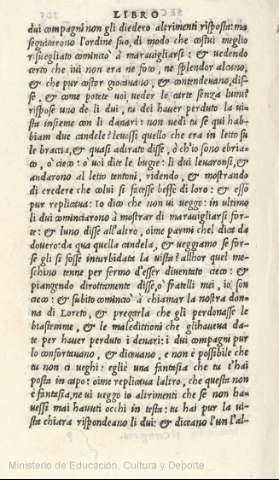 LIBRO
dui compagni non gli diedero altrimenti risposta: ma
seguitarono l'ordine suo, di modo che costui meglio
risuegliato cominciò à marauigliarsi: & uedendo
certo che iui non era ne foco, ne splendor alcuno,
& che pur costor giocauano, & contendeuano, dis-
se, & come potete uoi ueder le carte senza lume?
rispose uno de li dui, tu dei hauer perduto la ui-
sta insieme con li danari: non uedi tu se qui hab-
biam due candele? leuossi quello che era in letto su
le braccia, & quasi adirato disse, ò ch'io sono ebria-
co, ò cieco: ò uoi dite le bugie: li dui leuaronsi, &
andarono al letto tentoni, ridendo, & mostrando
di credere che colui si facesse beffe di loro: & esso
pur replicaua: Io dico che non ui ueggo: in ultimo
li dui cominciarono à mostrar di marauigliarsi for-
te: & luno disse all'altro, oime parmi ch'el dica da
douero: da qua quella candela, & ueggiamo se for-
se gli si fosse inturbidata la uista? allhor quel me-
schino tenne per fermo d'esser diuentato cieco: &
piangendo dirottamente disse, ò fratelli mei, io son
cieco: & subito cominciò à chiamar la nostra don-
na di Loreto, & pregarla che gli perdonasse le
biastemme, & le maledittioni che glihaueua da-
te per hauer perduto i denari: i dui compagni pur
lo confortauano, & diceuano, e non è possibile che
tu non ci ueghi: egliè una fantasia che tu t'hai
posta in capo: oime replicaua laltro, che questa non
è fantasia, ne ui ueggo io altrimenti che se non ha-
uessi mai hauuti occhi in testa: tu hai pur la ui-
sta chiara rispondeano li dui: & diceano l'un l'al-
Ministerio de Educación, Cultura y Deporte